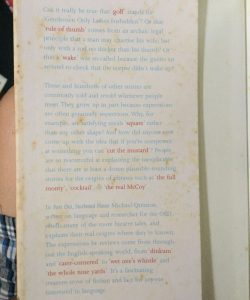 Can it really be true that 'golf' stands for
'Gentlemen Only Ladies Forbidden'? Or that
'rule of thumb' comes from an archaic legal
principle that a man may chastise his wife, but
only with a rod no thicker than his thumb? Or
that a 'wake' was so called because the guests
waited to check that the corpse didn't wake up?
These and hundreds of other stories are
commonly told and retold whenever people
meet. They grow up in part because expressions
are often genuinely mysterious. Why, for
example, are satisfying meals 'square' rather
than any other shape? And how did anyone ever
come up with the idea that if you're competent
at something you can 'cut the mustard'? People
are so resourceful at explaining the inexplicable
that there are at least a dozen plausible-sounding
stories for the origins of phrases such as 'the full
monty', 'cocktail' 'the real McCoy'
In Port Out, Starboard Home Michael Quinion,
a writer on language and researcher for the OED
of the more bizarre tales, and
explains their real origins where they're known.
The expressions he reviews come from through-
out the English-speaking world, from 'dinkum'
and 'cater-cornered' to 'wet one's whistle' and
'the whole nine yards'. It's a fascinating
treasure-trove of fiction and fact for anyone
interested in language.